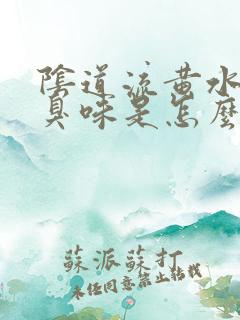 陰道流黃水
臭味是怎麼
蘇派蘇打
未經同意禁止轉載